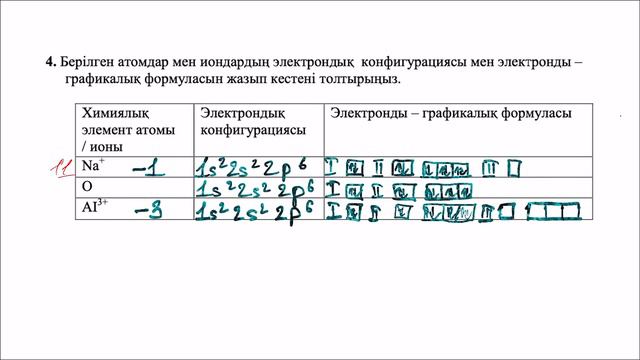 4. Берілген атомдар мен иондардың электрондық конфигурациясы мен электронды –
графикалық формуласын жазып кестені толтырыңыз.
Химиялық элемент атомы / ионы Электрондық конфигурациясы Электронды – графикалық формуласы
11 Na⁺ –1 1s² 2s² 2p⁶ I II III
O 1s² 2s² 2p⁶ I II
AI³⁺ –3 1s² 2s² 2p⁶ I II III